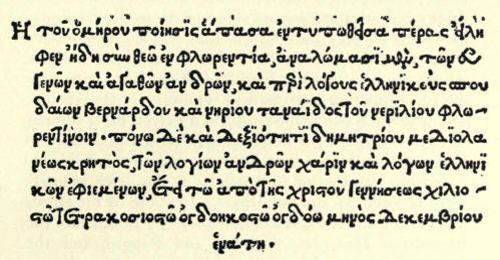 Ἡ τοῦ ὁμήρου ποίησις ἅπασα ἐντυπωθεῖσα πέρας εἴλη
φεν ἤδη σὺν θεῷ ἐν φλωρεντίᾳ, ἀναλώμασι μὲν, τῶν εὐ
γενῶν καὶ ἀγαθῶν ἀνδρῶν, καὶ περὶ λόγους ἑλληνικοὺς σπου
δαίων βερνάρδου καὶ νηρίου ταναΐδος τοῦ νεριλίου φλω
ρεντίνοιν· πόνῳ δὲ καὶ δεξιότητι δημητρίου μεδιολα
νέως κρητὸς, τῶν λογίων ἀνδρῶν χάριν καὶ λόγων ἑλληνι
κῶν ἐφιεμένων, ἔτει τῷ ἀπὸ τῆς χριστοῦ γεννήσεως χιλιο
στῷ τετρακοσιοστῷ ὀγδοηκοστῷ ὀγδόῳ μηνὸς δεκεμβρίου
ἐνάτῃ.